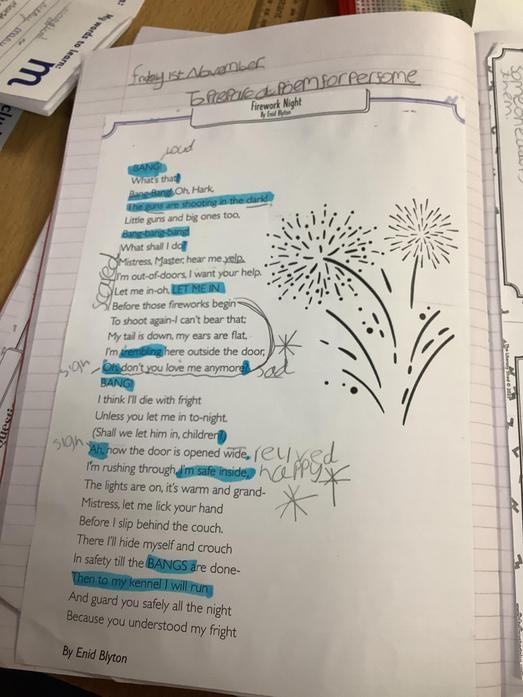 My words to learn:
m
Friday 1st November
To Prepare a Poem for perfome
Firework Night
By Enid Blyton
loud
BANG!
What's that!
Bang-Bang! Oh, Hark,
The guns are shooting in the dark!
Little guns and big ones too,
Bang-bang-bang!
What shall I do?
Mistress, Master, hear me yelp,
I'm out-of-doors, I want your help.
scared
Let me in-oh, LET ME IN
Before those fireworks begin
To shoot again-I can't bear that;
My tail is down, my ears are flat,
I'm trembling here outside the door,
sigh
Oh, don't you love me anymore?
sad
BANG!
I think I'll die with fright
Unless you let me in to-night.
(Shall we let him in, children?)
sigh
Ah, now the door is opened wide,
relived
I'm rushing through, I'm safe inside,
happy
The lights are on, it's warm and grand-
Mistress, let me lick your hand
Before I slip behind the couch.
There I'll hide myself and crouch
In safety till the BANGS are done-
Then to my kennel I will run
And guard you safely all the night
Because you understood my fright
By Enid Blyton